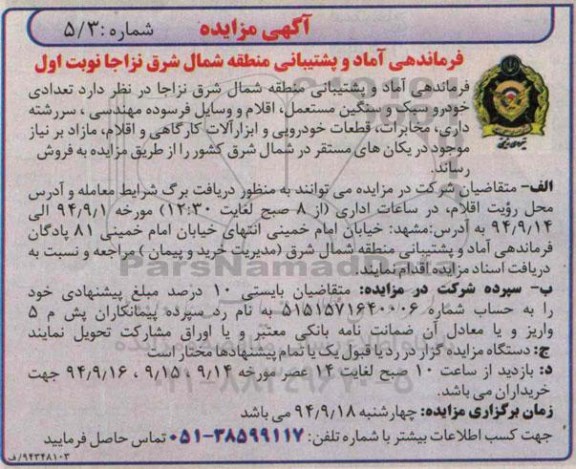 آگهی مزایده
شماره: ۵/۳
فرماندهی آماد و پشتیبانی منطقه شمال شرق نزاجا نوبت اول
فرماندهی آماد و پشتیبانی منطقه شمال شرق نزاجا در نظر دارد تعدادی
خودرو سبک و سنگین مستعمل، اقلام و وسایل فرسوده مهندسی، سررشته
داری، مخابرات، قطعات خودرویی و ابزارآلات کارگاهی و اقلام، مازاد بر نیاز
موجود در یکان های مستقر در شمال شرق کشور را از طریق مزایده به فروش
رساند.
الف- متقاضیان شرکت در مزایده می توانند به منظور دریافت برگ شرایط معامله و آدرس
محل رؤیت اقلام، در ساعات اداری (از ۸ صبح لغایت ۱۲:۳۰) مورخه ۹۴/۹/۱ الی
۹۴/۹/۱۴ به آدرس: مشهد: خیابان امام خمینی انتهای خیابان امام خمینی ۸۱ پادگان
فرماندهی آماد و پشتیبانی منطقه شمال شرق (مدیریت خرید و پیمان) مراجعه و نسبت به
دریافت اسناد مزایده اقدام نمایند.
ب- سپرده شرکت در مزایده: متقاضیان بایستی ۱۰ درصد مبلغ پیشنهادی خود
را به حساب شماره ۵۱۵۱۵۷۱۶۴۰۰۰۶ به نام رد سپرده پیمانکاران پش م ۵
واریز و یا معادل آن ضمانت نامه بانکی معتبر و یا اوراق مشارکت تحویل نمایند
ج: دستگاه مزایده گزار در رد یا قبول یک یا تمام پیشنهادها مختار است
د: بازدید از ساعت ۱۰ صبح لغایت ۱۴ عصر مورخه ۹/۱۴ ، ۹/۱۵ ، ۹۴/۹/۱۶ جهت
خریداران می باشد.
زمان برگزاری مزایده: چهارشنبه ۹۴/۹/۱۸ می باشد
جهت کسب اطلاعات بیشتر با شماره تلفن: ۳۸۵۹۹۱۱۷-۰۵۱ تماس حاصل فرمایید
۹۴۳۴۸۱۰۳/ف
ParsNamadData